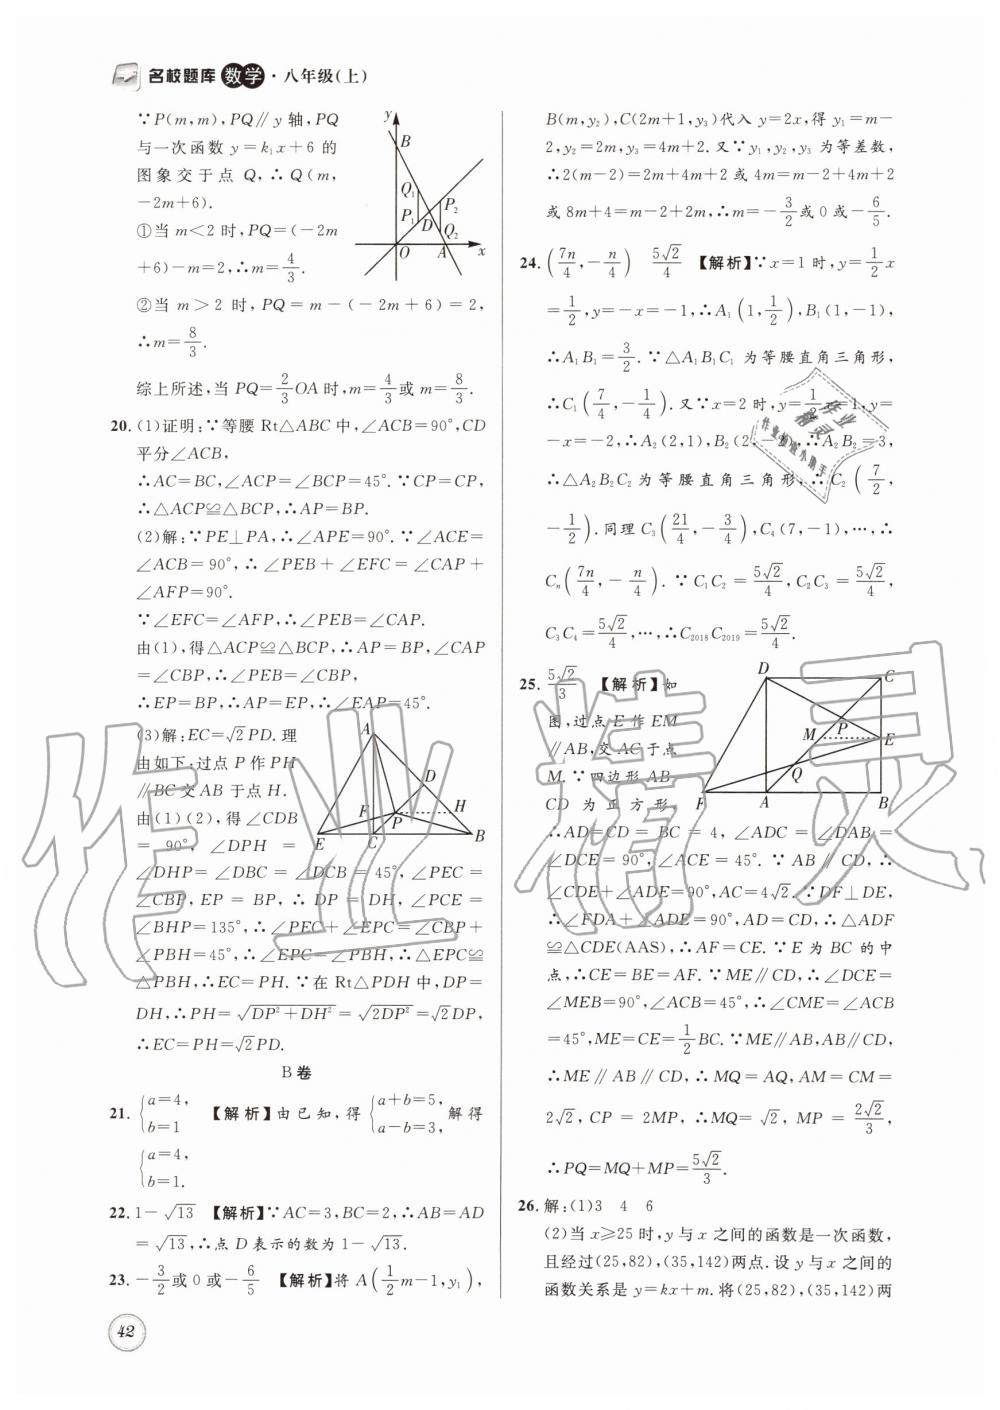 名校题库 数学·八年级(上)
∵P(m,m),PQ∥y轴,∴PQ
与一次函数 y=k₁x+6 的
图象交于点 Q,∴Q(m,
-2m+6).
①当 m<2 时,PQ=(-2m
+6)-m=2,∴m=4/3.
②当 m>2 时,PQ=m-(-2m+6)=2,
∴m=8/3.
综上所述,当 PQ=2/3OA 时,m=4/3或 m=8/3.
y
B
Q₁
P₂
P₁
D
Q₂
O
A
x
20. (1)证明:∵等腰 Rt△ABC 中,∠ACB=90°,CD
平分∠ACB,
∴AC=BC,∠ACP=∠BCP=45°.∵CP=CP,
∴△ACP≌△BCP,∴AP=BP.
(2)解:∵PE⊥PA,∴∠APE=90°.∵∠ACE=
∠ACB=90°,∴∠PEB+∠EFC=∠CAP+
∠AFP=90°.
∵∠EFC=∠AFP,∴∠PEB=∠CAP.
由(1),得△ACP≌△BCP,∴AP=BP,∠CAP
=∠CBP,∴∠PEB=∠CBP,
∴EP=BP,∴AP=EP,∴∠EAP=45°.
(3)解:EC=√2PD.理
由如下:过点 P 作 PH
∥BC 交 AB 于点 H.
由(1)(2),得∠CDB
=90°,∠DPH=
∠DHP=∠DBC=∠DCB=45°,∠PEC=
∠CBP,EP=BP,∴DP=DH,∠PCE=
∠BHP=135°,∴∠PEC+∠EPC=∠CBP+
∠PBH=45°,∴∠EPC=∠PBH,∴△EPC≌
△PBH,∴EC=PH.∵在 Rt△PDH 中,DP=
DH,∴PH=√(DP²+DH²)=√(2DP²)=√2DP,
∴EC=PH=√2PD.
A
D
F
P
H
E
C
B
B卷
21. {a=4, b=1 【解析】由已知,得 {a+b=5, a-b=3, 解得
{a=4, b=1.
22. 1-√13 【解析】∵AC=3,BC=2,∴AB=AD
=√13,∴点 D 表示的数为 1-√13.
23. -3/2或 0 或-6/5 【解析】将 A(1/2m-1,y₁),
42
B(m,y₂),C(2m+1,y₃)代入 y=2x,得 y₁=m-
2,y₂=2m,y₃=4m+2.又∵y₁,y₂,y₃ 为等差数,
∴2(m-2)=2m+4m+2 或 4m=m-2+4m+2
或 8m+4=m-2+2m,∴m=-3/2或 0 或-6/5.
24. (7n/4,-n/4) 5√2/4 【解析】∵x=1 时,y=1/2x
=1/2,y=-x=-1,∴A₁(1,1/2),B₁(1,-1),
∴A₁B₁=3/2.∵△A₁B₁C₁ 为等腰直角三角形,
∴C₁(7/4,-1/4).又∵x=2 时,y=1/2x=1,y=
-x=-2,∴A₂(2,1),B₂(2,-2),∴A₂B₂=3,
∴△A₂B₂C₂ 为等腰直角三角形,∴C₂(7/2,
-1/2).同理 C₃(21/4,-3/4),C₄(7,-1),…,∴
Cₙ(7n/4,-n/4).∵C₁C₂=5√2/4,C₂C₃=5√2/4,
C₃C₄=5√2/4,…,∴C₂₀₁₈C₂₀₁₉=5√2/4.
25. 5√2/3 【解析】如
图,过点 E 作 EM
∥AB,交 AC 于点
M.∵四边形 AB
CD 为正方形,
D
C
M
P
E
Q
F
A
B
∴AD=CD=BC=4,∠ADC=∠DAB=
∠DCE=90°,∠ACE=45°.∵AB∥CD,∴
∠CDE+∠ADE=90°,AC=4√2.∵DF⊥DE,
∴∠FDA+∠ADE=90°,AD=CD,∴△ADF
≌△CDE(AAS),∴AF=CE.∵E 为 BC 的中
点,∴CE=BE=AF.∵ME∥CD,∴∠DCE=
∠MEB=90°,∠ACB=45°,∴∠CME=∠ACB
=45°,ME=CE=1/2BC.∵ME∥AB,AB∥CD,
∴ME∥AB∥CD,∴MQ=AQ,AM=CM=
2√2,CP=2MP,∴MQ=√2,MP=2√2/3,
∴PQ=MQ+MP=5√2/3.
26. 解:(1)3 4 6
(2)当 x≥25 时,y 与 x 之间的函数是一次函数,
且经过(25,82),(35,142)两点.设 y 与 x 之间的
函数关系是 y=kx+m.将(25,82),(35,142)两
作业精灵
作业精灵